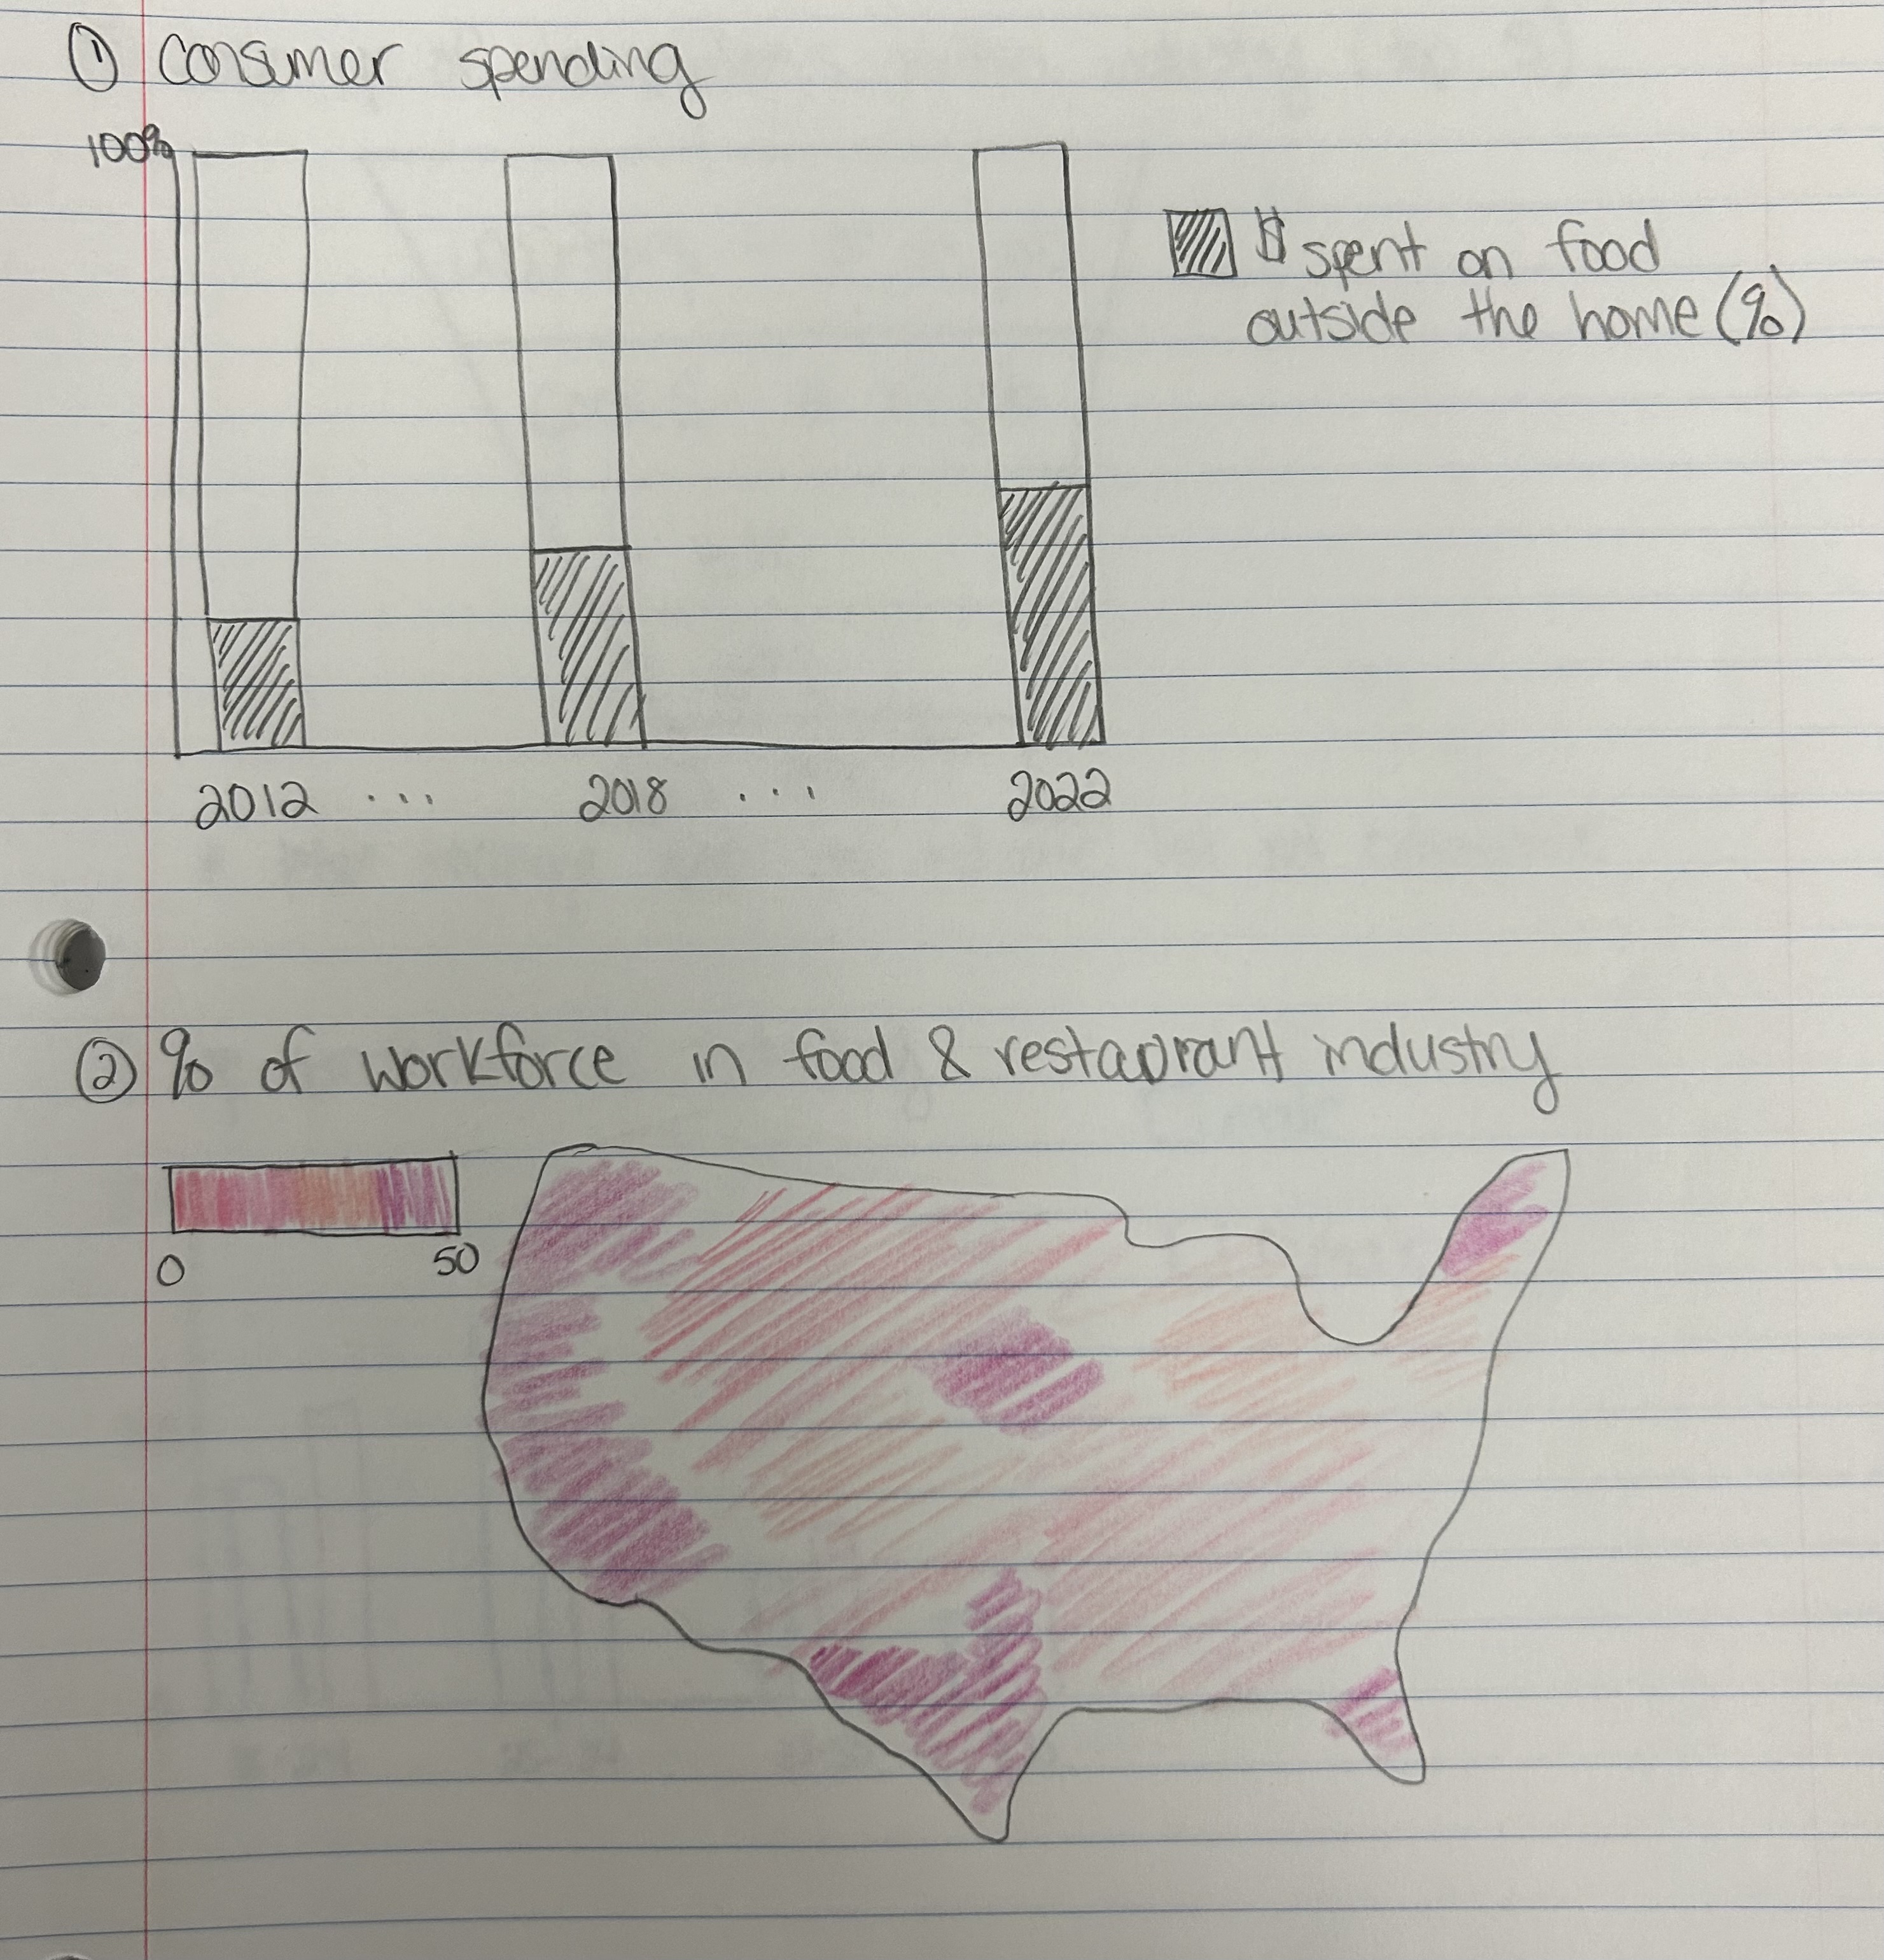 ① Consumer spending
100%
$ spent on food
outside the home (%)
2012 ... 2018 ... 2022
② % of workforce in food & restaurant industry
0 50